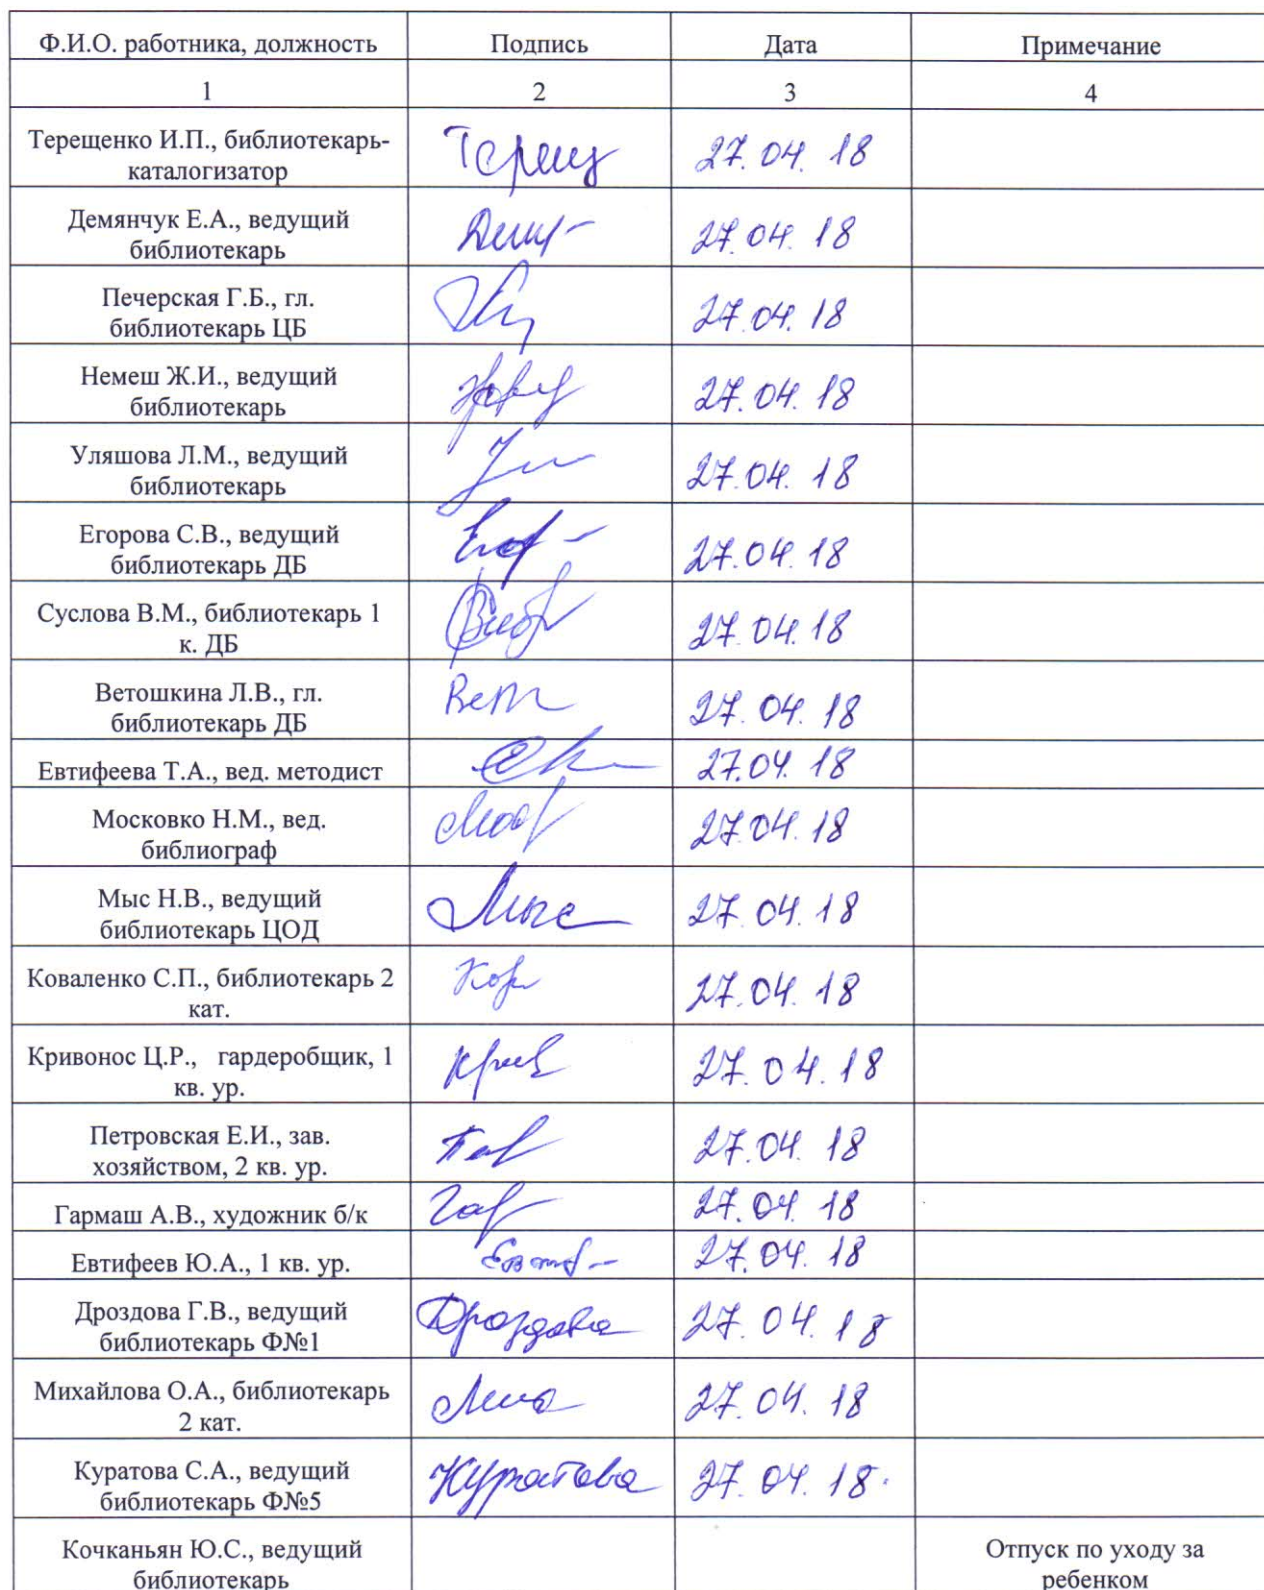 Ф.И.О. работника, должность Подпись Дата Примечание
1 2 3 4
Терещенко И.П., библиотекарь-
каталогизатор
Терещ 27.04.18
Демянчук Е.А., ведущий
библиотекарь
27.04.18
Печерская Г.Б., гл.
библиотекарь ЦБ
27.04.18
Немеш Ж.И., ведущий
библиотекарь
27.04.18
Уляшова Л.М., ведущий
библиотекарь
27.04.18
Егорова С.В., ведущий
библиотекарь ДБ
27.04.18
Суслова В.М., библиотекарь 1
к. ДБ
27.04.18
Ветошкина Л.В., гл.
библиотекарь ДБ
Вет 27.04.18
Евтифеева Т.А., вед. методист 27.04.18
Московко Н.М., вед.
библиограф
27.04.18
Мыс Н.В., ведущий
библиотекарь ЦОД
Мыс 27.04.18
Коваленко С.П., библиотекарь 2
кат.
27.04.18
Кривонос Ц.Р., гардеробщик, 1
кв. ур.
27.04.18
Петровская Е.И., зав.
хозяйством, 2 кв. ур.
27.04.18
Гармаш А.В., художник б/к 27.04.18
Евтифеев Ю.А., 1 кв. ур. 27.04.18
Дроздова Г.В., ведущий
библиотекарь Ф№1
Дроздова 27.04.18
Михайлова О.А., библиотекарь
2 кат.
27.04.18
Куратова С.А., ведущий
библиотекарь Ф№5
Куратова 27.04.18.
Кочканьян Ю.С., ведущий
библиотекарь
Отпуск по уходу за
ребенком